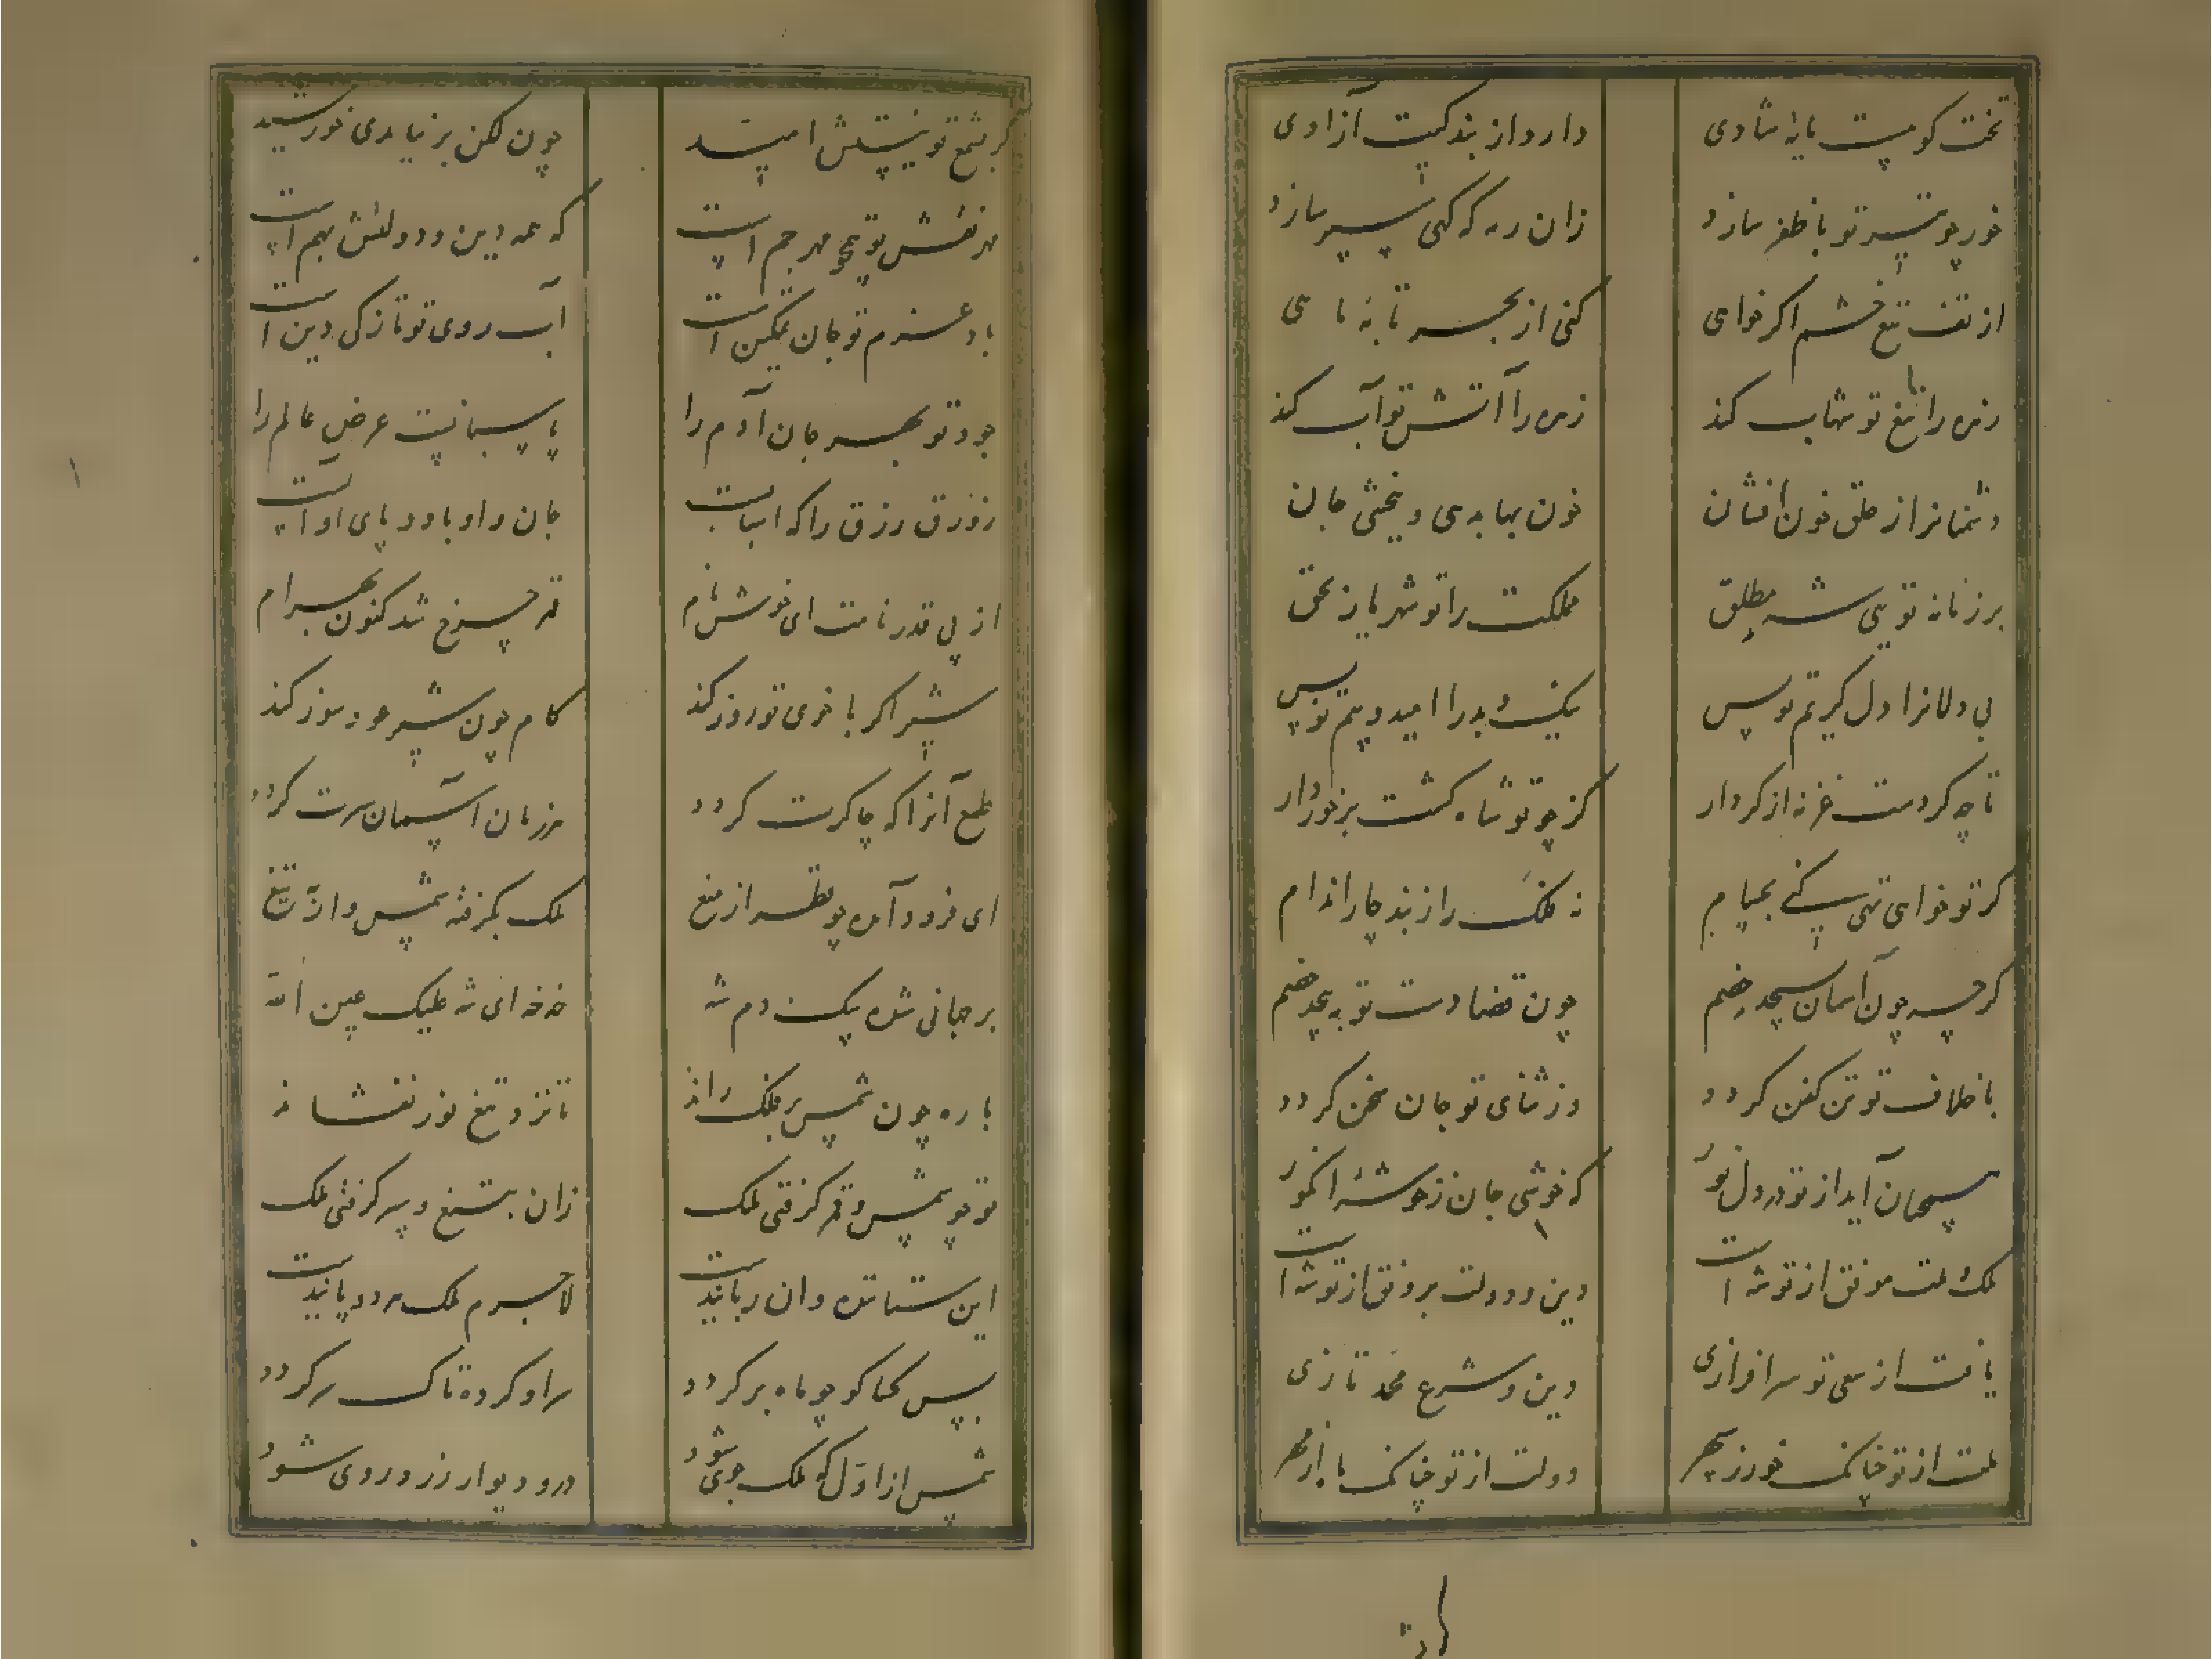 تخت کو هست مایه شادی دارد از بندگیت آزادی
خور چو تیر تو با ظفر سازد زان ره که گهی سپر سازد
از تف تیغ خشم اگر خواهی کنی از بحر تابه ماهی
زهره را تیغ تو شهاب کند زهره را آتش تو آب کند
دشمنانرا ز حلق خون افشان خون بها بدهی و ببخشی جان
بر زمانه تویی شه مطلق مملکت را تو شهریار بحق
بی دلانرا دل کریم تو بس نیک و بد را امید و بیم تو بس
تا چه کردست غزنه از کردار کز چو تو شاه گشت برخوردار
گر تو خواهی تهی کنی بحسام نه فلک را ز بند چار اندام
گرچه چون آسمان بسیجد خصم چون قضا دست تو بپیچد خصم
با خلاف تو تن کفن گردد وز ثنای تو جان سخن گردد
همچنان آید از تو در دل نور که خوشی جان ز خوشه انگور
ملک و ملت موفق از تو شه است دین و دولت برونق از تو شه است
یافت از سعی تو سرافرازی دین و شرع محمد تازی
ملت از تو چنانک خور ز سپهر دولت از تو چنانک ماه از مهر
گر بشمع تو نیستش امید چون لگن بر نیایدی خورشید
مهر نقش تو همچو مهر جم است که همه دین و دولتش بهم است
باد عزم تو جان تمکین است آب روی تو تازگی دین است
جود تو بهر جان آدم را پاسبانیت عرض عالم را
زورق رزق را که اسبابست جان و او باد و پای او آبست
از پی قدر نامت ای خوش نام قمر چرخ شد کنون بهرام
شیر اگر با خوی تو روز کند کام چون شیر عود سوز کند
طمع آنرا که چاکرت گردد مرزبان آسمان سرت گردد
ای فرود آمده چو قطر از میغ ملک بگرفته شمس وار به تیغ
بر جهانی شده بیک دم شه خه خه ای شه علیک عین الله
باره چون شمس بر فلک راند تا نزد تیغ نور نفشاند
تو چو شمس و قمر گرفتی ملک زان بتیغ و سپر گرفتی ملک
این ستاننده وان رباینده لاجرم ملک هر دو پاینده
پس کجا کو چو ماه برگردد سر او کرده تا که سرگردد
شمس از اول که ملک جوی شود در و دیوار زرد روی شود